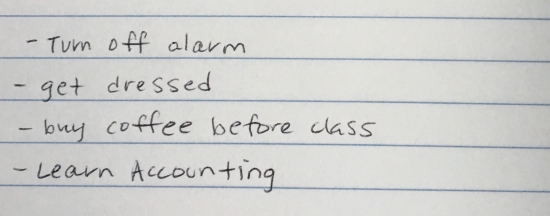 - Turn off alarm
- get dressed
- buy coffee before class
- Learn Accounting